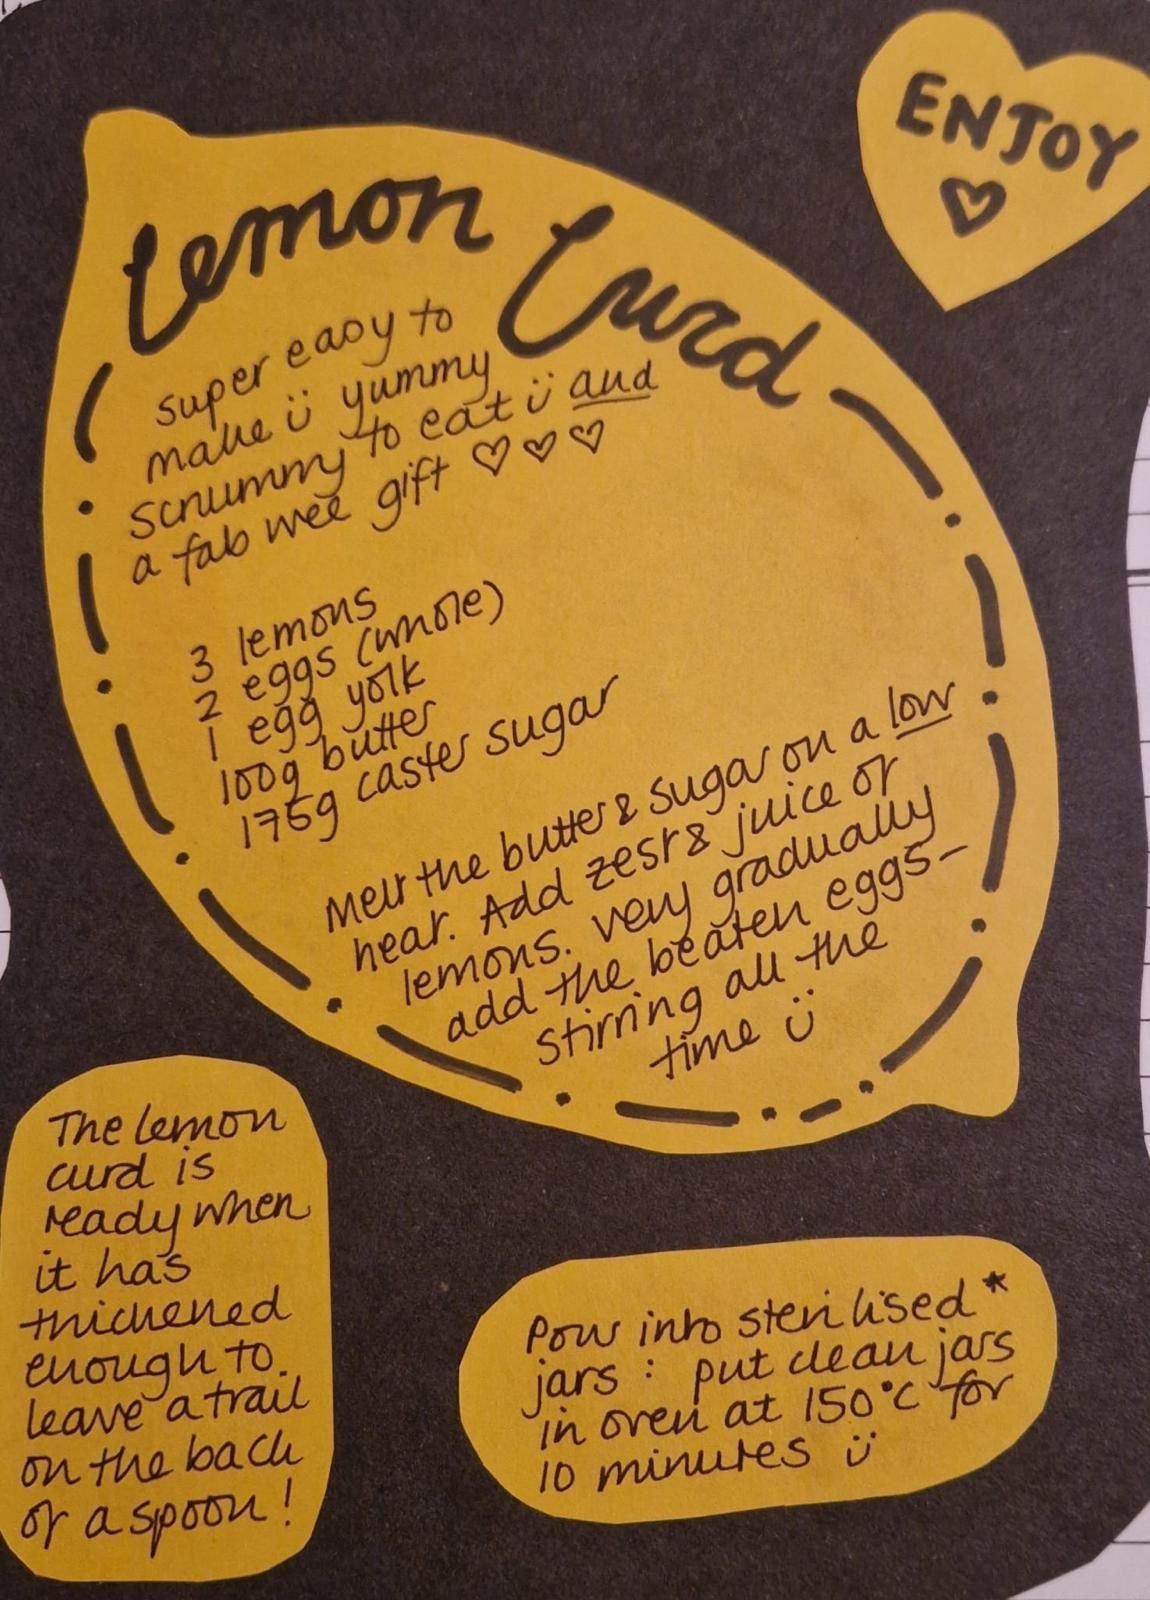 Lemon Curd
super easy to
make ü yummy
scrummy to eat ü and
a fab wee gift ♡ ♡ ♡
3 lemons
2 eggs (whole)
1 egg yolk
100g butter
175g caster sugar
Melt the butter & sugar on a low
heat. Add zest & juice of
lemons. very gradually
add the beaten eggs –
stirring all the
time ü
ENJOY
♡
The lemon
curd is
ready when
it has
thickened
enough to
leave a trail
on the back
of a spoon!
Pour into sterilised *
jars : put clean jars
in oven at 150°c for
10 minutes ü